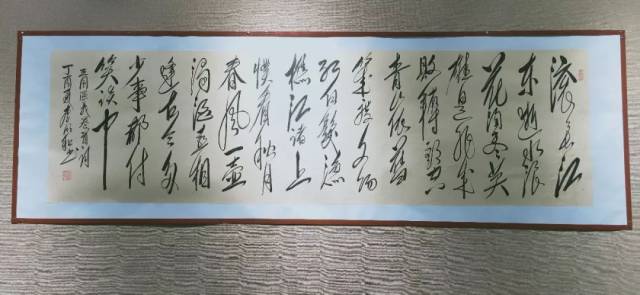 滚滚长江
东逝水浪
花淘尽英
雄是非成
败转头空
青山依旧
在几度夕阳
红白发渔
樵江渚上
惯看秋月
春风一壶
浊酒喜相
逢古今多
少事都付
笑谈中
丁酉